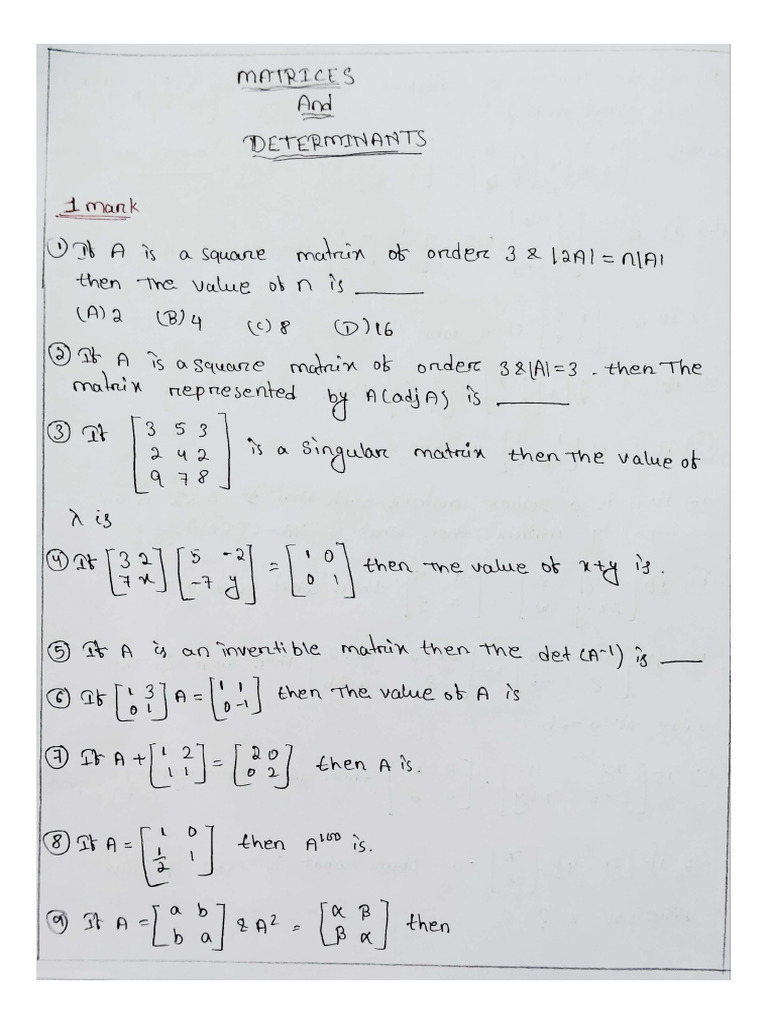 MATRICES
And
DETERMINANTS
1 mark
① If A is a square matrix of order 3 & |2A| = n|A|
then the value of n is ______
(A) 2 (B) 4 (C) 8 (D) 16
② If A is a square matrix of order 3 & |A| = 3 . then The
matrix represented by A(adjA) is ______
③ If [3 5 3
2 4 2
9 7 8] is a singular matrix then the value of
λ is
④ If [3 2
7 x] [5 -2
-7 y] = [1 0
0 1] then the value of x+y is.
⑤ If A is an invertible matrix then the det (A⁻¹) is ___
⑥ If [1 3
0 1] A = [1 1
0 -1] then the value of A is
⑦ If A + [1 2
1 1] = [2 0
0 2] then A is.
⑧ If A = [1 0
1/2 1] then A¹⁰⁰ is.
⑨ If A = [a b
b a] & A² = [α β
β α] then